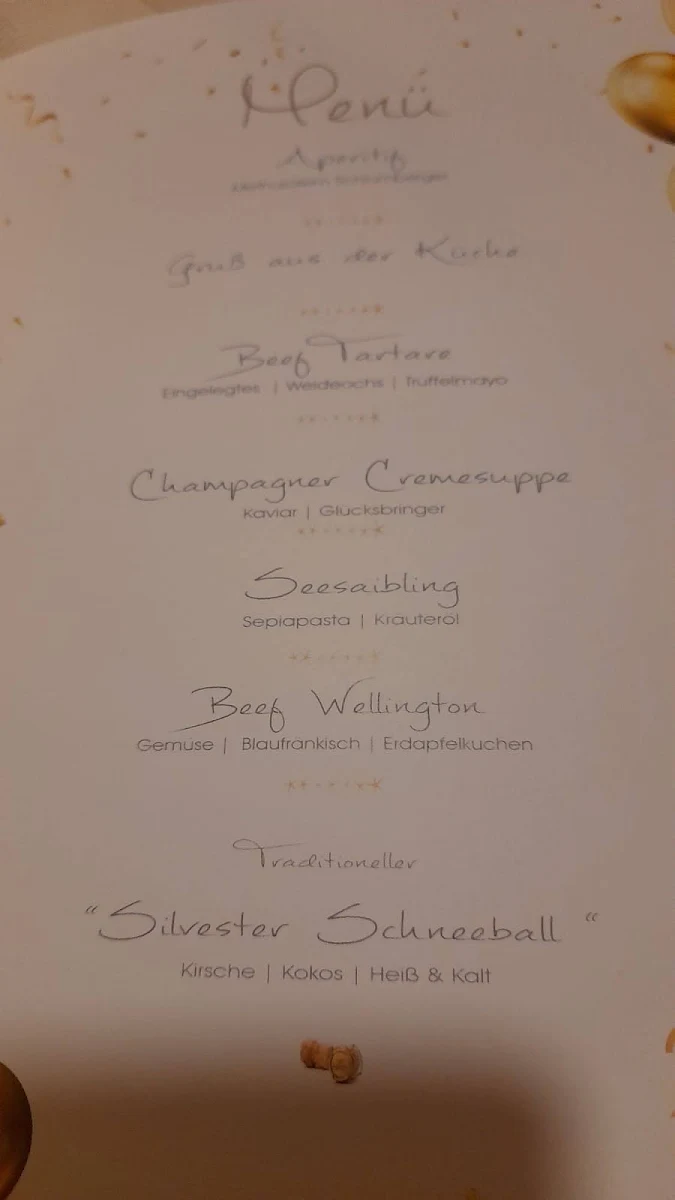 Menü
Aperitif
Gruß aus der Küche
Beef Tartare
Eingelegtes | Weideochs | Trüffelmayo
Champagner Cremesuppe
Kaviar | Glücksbringer
Seesaibling
Sepiapasta | Kräuteröl
Beef Wellington
Gemüse | Blaufränkisch | Erdäpfelkuchen
Traditioneller
“Silvester Schneeball “
Kirsche | Kokos | Heiß & Kalt